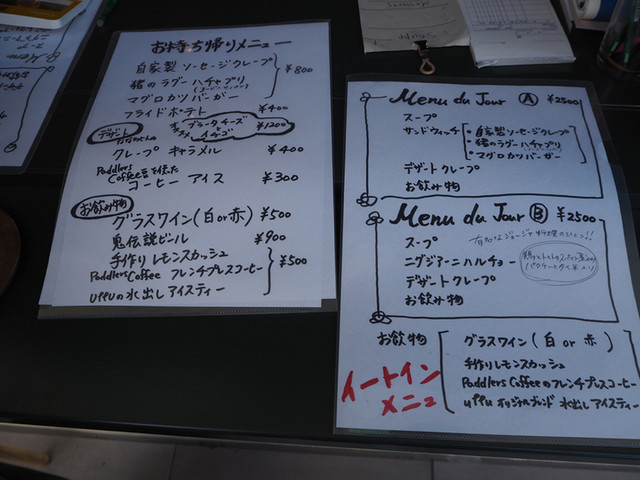 お持ち帰りメニュー
自家製ソーセージクレープ
猪のラグーハチャプリ
マグロカツバーガー
¥800
フライドポテト ¥400
ブラータチーズ + イチゴ ¥1200
デザート
クレープ キャラメル ¥400
Poddlers Coffee豆を使った
コーヒーアイス ¥300
お飲み物
グラスワイン(白or赤) ¥500
鬼伝説ビール ¥900
手作りレモンスカッシュ
Poddlers Coffee フレンチプレスコーヒー
uffuの水出しアイスティー
¥500
Menu du Jour A ¥2500
スープ
サンドウィッチ
・自家製ソーセージクレープ
・猪のラグーハチャプリ
・マグロカツバーガー
デザートクレープ
お飲み物
Menu du Jour B ¥2500
有名なジョージア料理のひとつ!!
スープ
ニグジアーニハルチョー
デザートクレープ
お飲み物
お飲み物
グラスワイン(白or赤)
手作りレモンスカッシュ
Poddlers Coffeeのフレンチプレスコーヒー
uffu オリジナルブレンド 水出しアイスティー
イートイン
メニュー